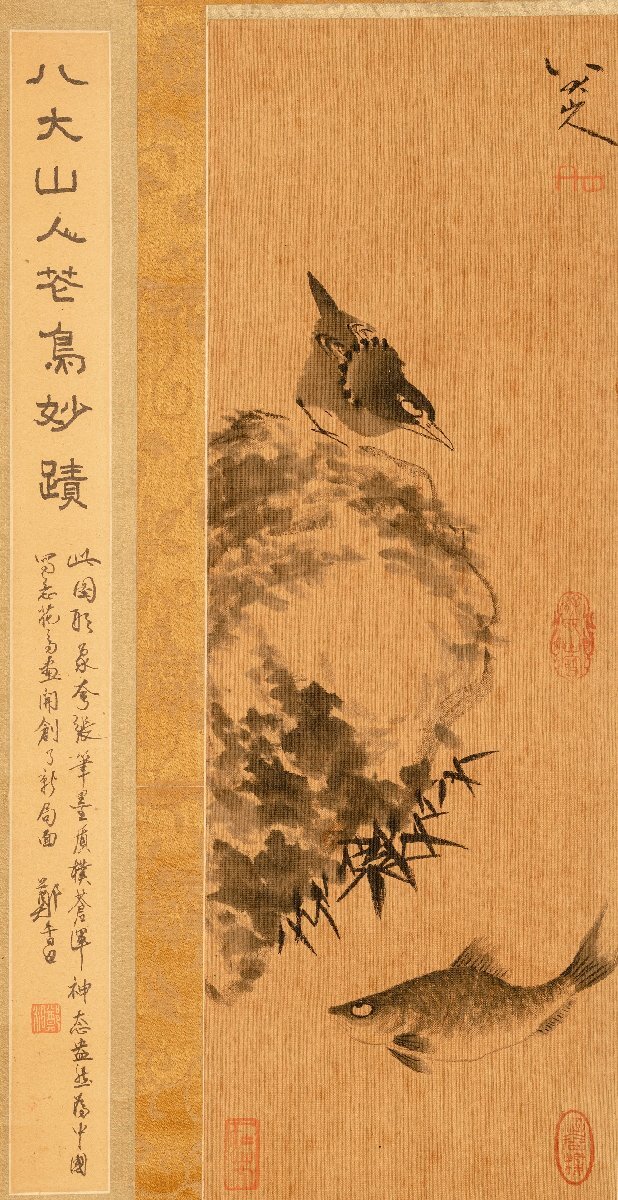 八大山人
八大山人花鳥妙蹟
此図形象夸張筆墨質樸蒼渾神态盎然為中國
写意花鳥畫開創了新局面 鄭